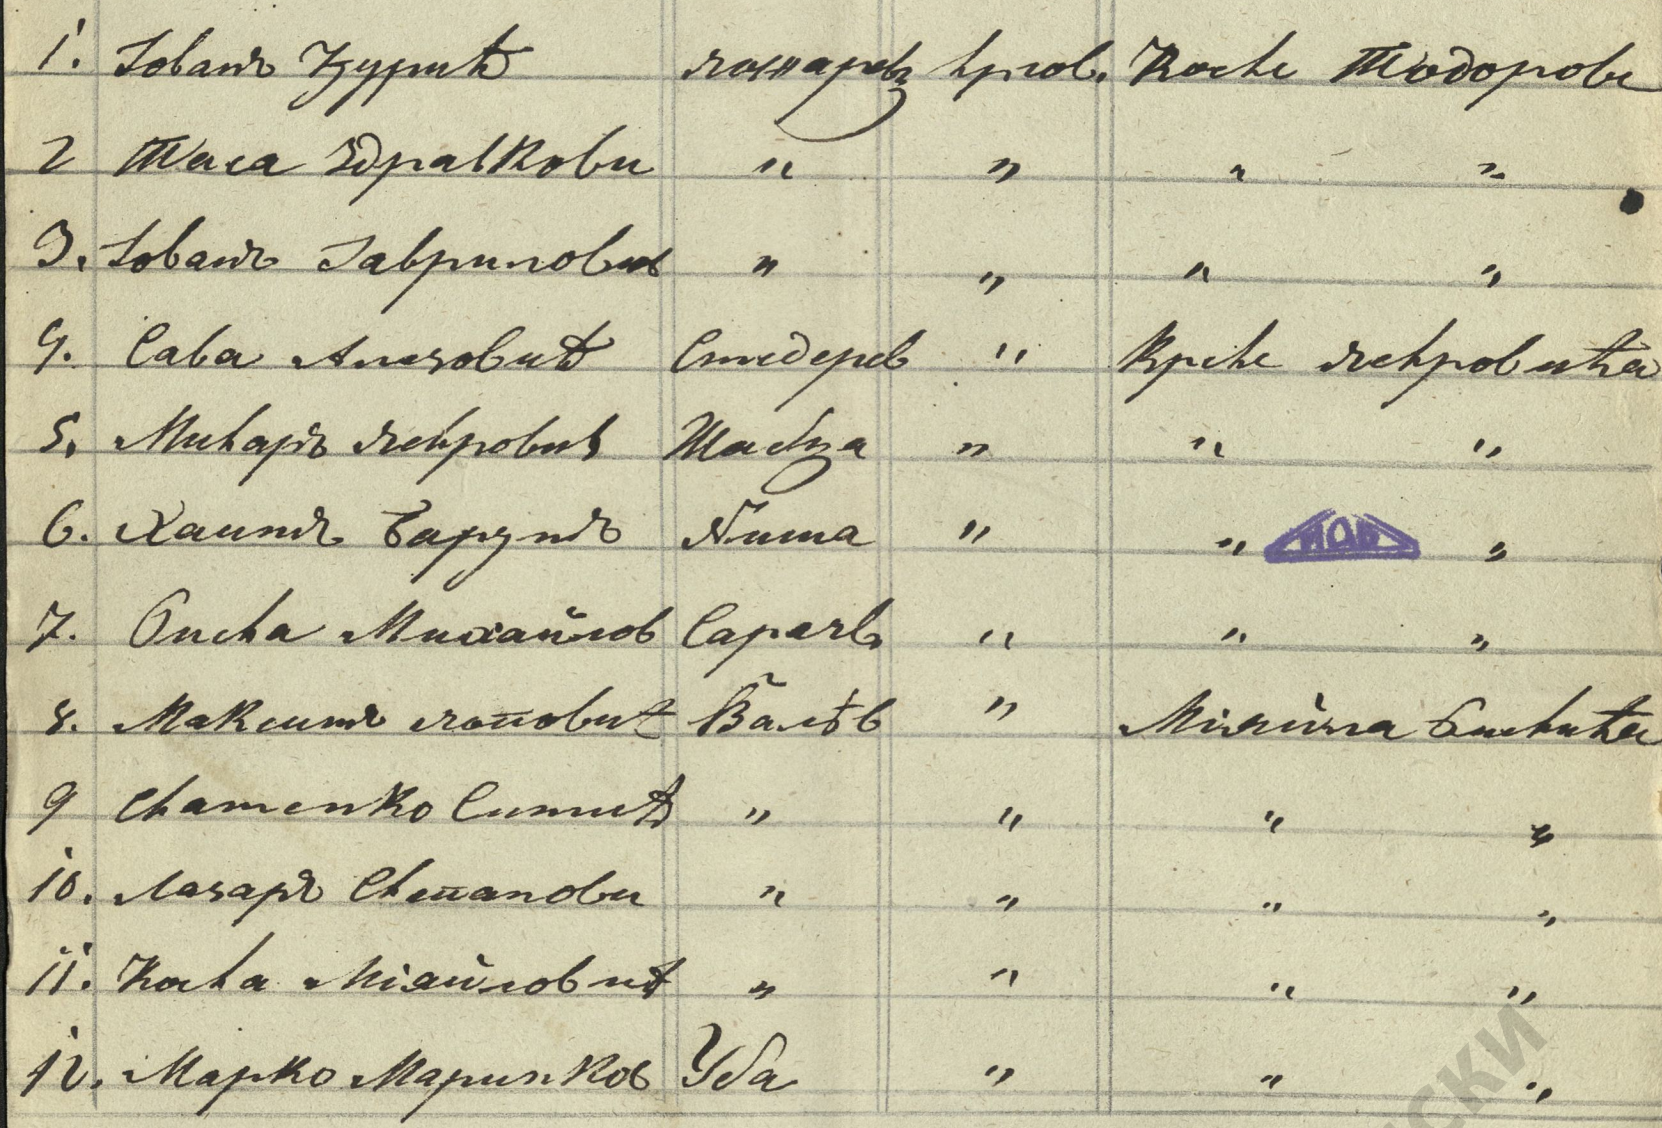 1. Іованъ Ђурић пожарев тргов. Косте Тодорови
2 Таса Здравкови " " " "
3. Іованъ Гавриловић " " " "
4. Сава Алезовић Смедерев " Крсте Петровића
5. Михаръ Петровић Шабца " " "
6. Хаимъ Барухъ Ниша " " "
7. Риста Михайлов Сараев " " "
8. Максимъ Поповић Валѣв " Міяйла Ристића
9 Стаменко Симић " " " "
10. Лазаръ Степанови " " " "
11. Коста Міяйловић " " " "
12. Марко Маринков Уба " " "